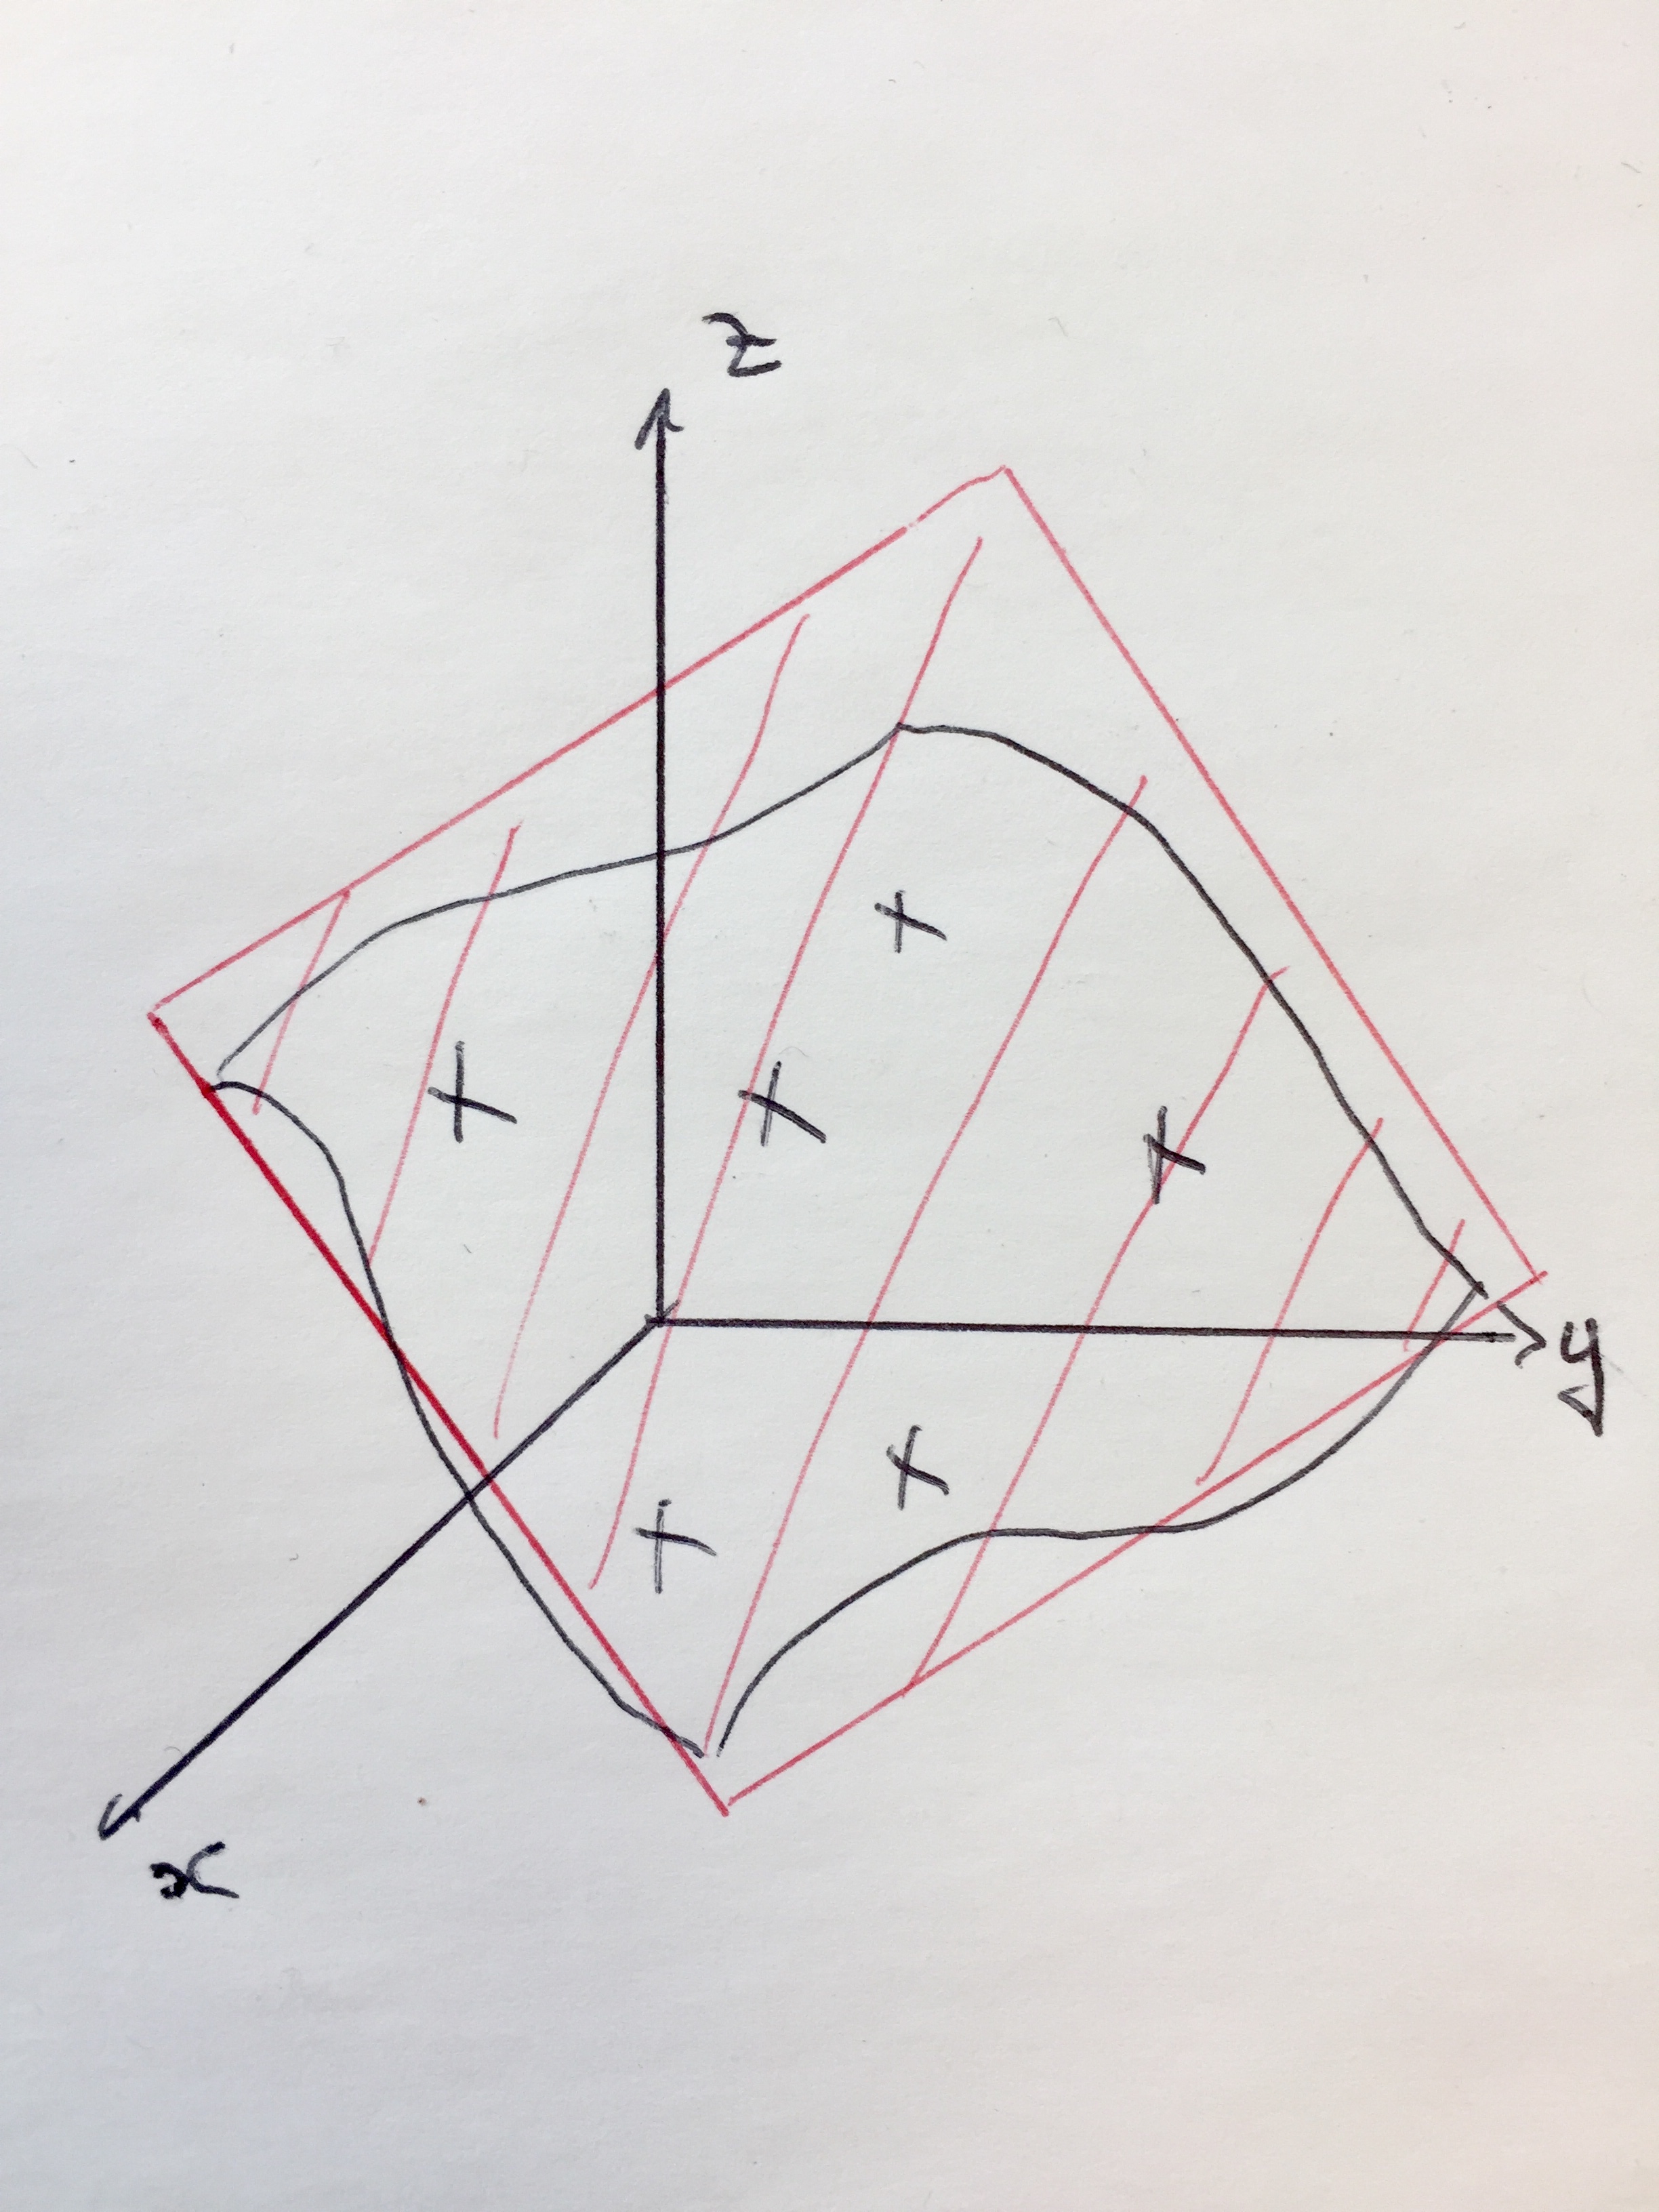 z
+
+ + +
y
+
+
x